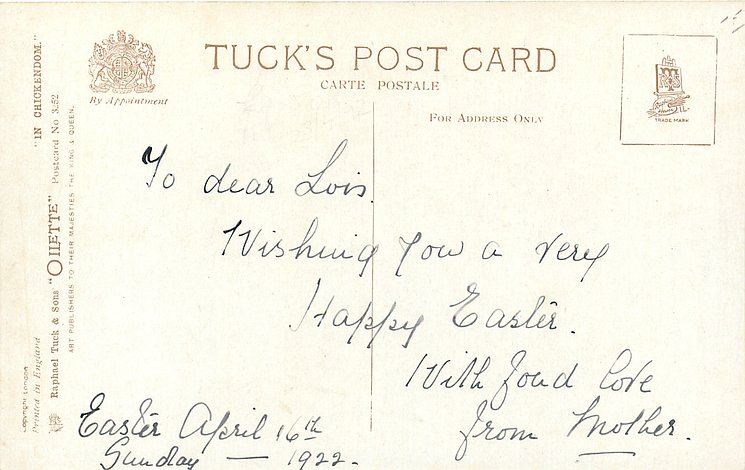 TUCK'S POST CARD
CARTE POSTALE
By Appointment
FOR ADDRESS ONLY
TRADE MARK
"IN CHICKENDOM."
Raphael Tuck & Sons "OILETTE" Postcard No 3552
ART PUBLISHERS TO THEIR MAJESTIES THE KING & QUEEN.
Copyright London
Printed in England
To dear Lois.
Wishing you a very
Happy Easter.
With fond love
from Mother.
Easter April 16th
Sunday — 1922.